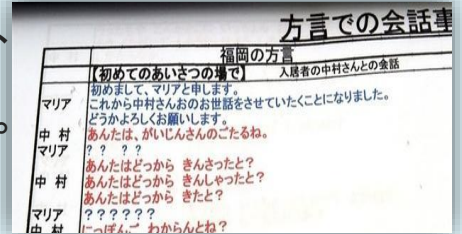 方言での会話事
福岡の方言
【初めてのあいさつの場で】 入居者の中村さんとの会話
初めまして、マリアと申します。
マリア これから中村さんおのお世話をさせていたくことになりました。
どうかよろしくお願いします。
中 村 あんたは、がいじんさんのごたるね。
マリア ？？ ？？
あんたはどっから きんさったと？
中 村 あんたはどっから きんしゃったと？
あんたはどっから きたと？
マリア ？？？？？？
中 村 にっぽんご わからんとね？